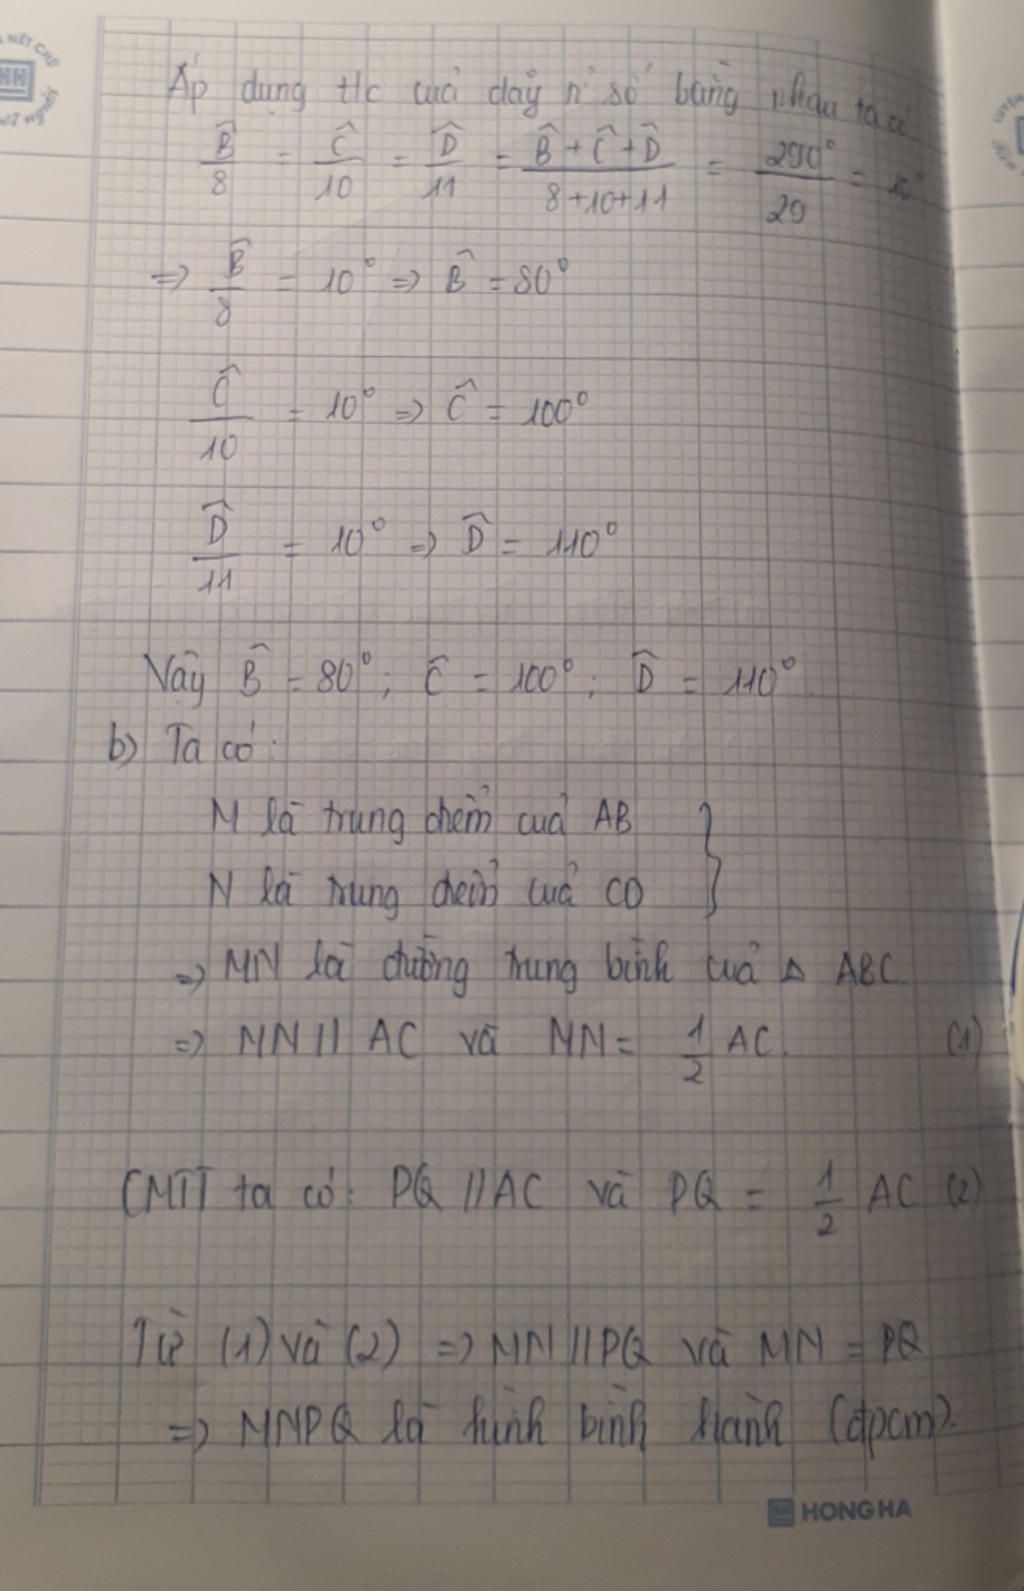 Áp dụng t/c của dãy tỉ số bằng nhau ta có
B̂/8 = Ĉ/10 = D̂/11 = B̂+Ĉ+D̂/8+10+11 = 290°/29 = 10°
=> B̂/8 = 10° => B̂ = 80°
Ĉ/10 = 10° => Ĉ = 100°
D̂/11 = 10° => D̂ = 110°
Vậy B̂ = 80°; Ĉ = 100°; D̂ = 110°.
b) Ta có:
M là trung điểm của AB }
N là trung điểm của CD }
=> MN là đường trung bình của Δ ABC
=> MN // AC và MN = 1/2 AC. (1)
CMTT ta có: PQ // AC và PQ = 1/2 AC (2)
Từ (1) và (2) => MN // PQ và MN = PQ
=> MNPQ là hình bình hành (đpcm).
HONG HA